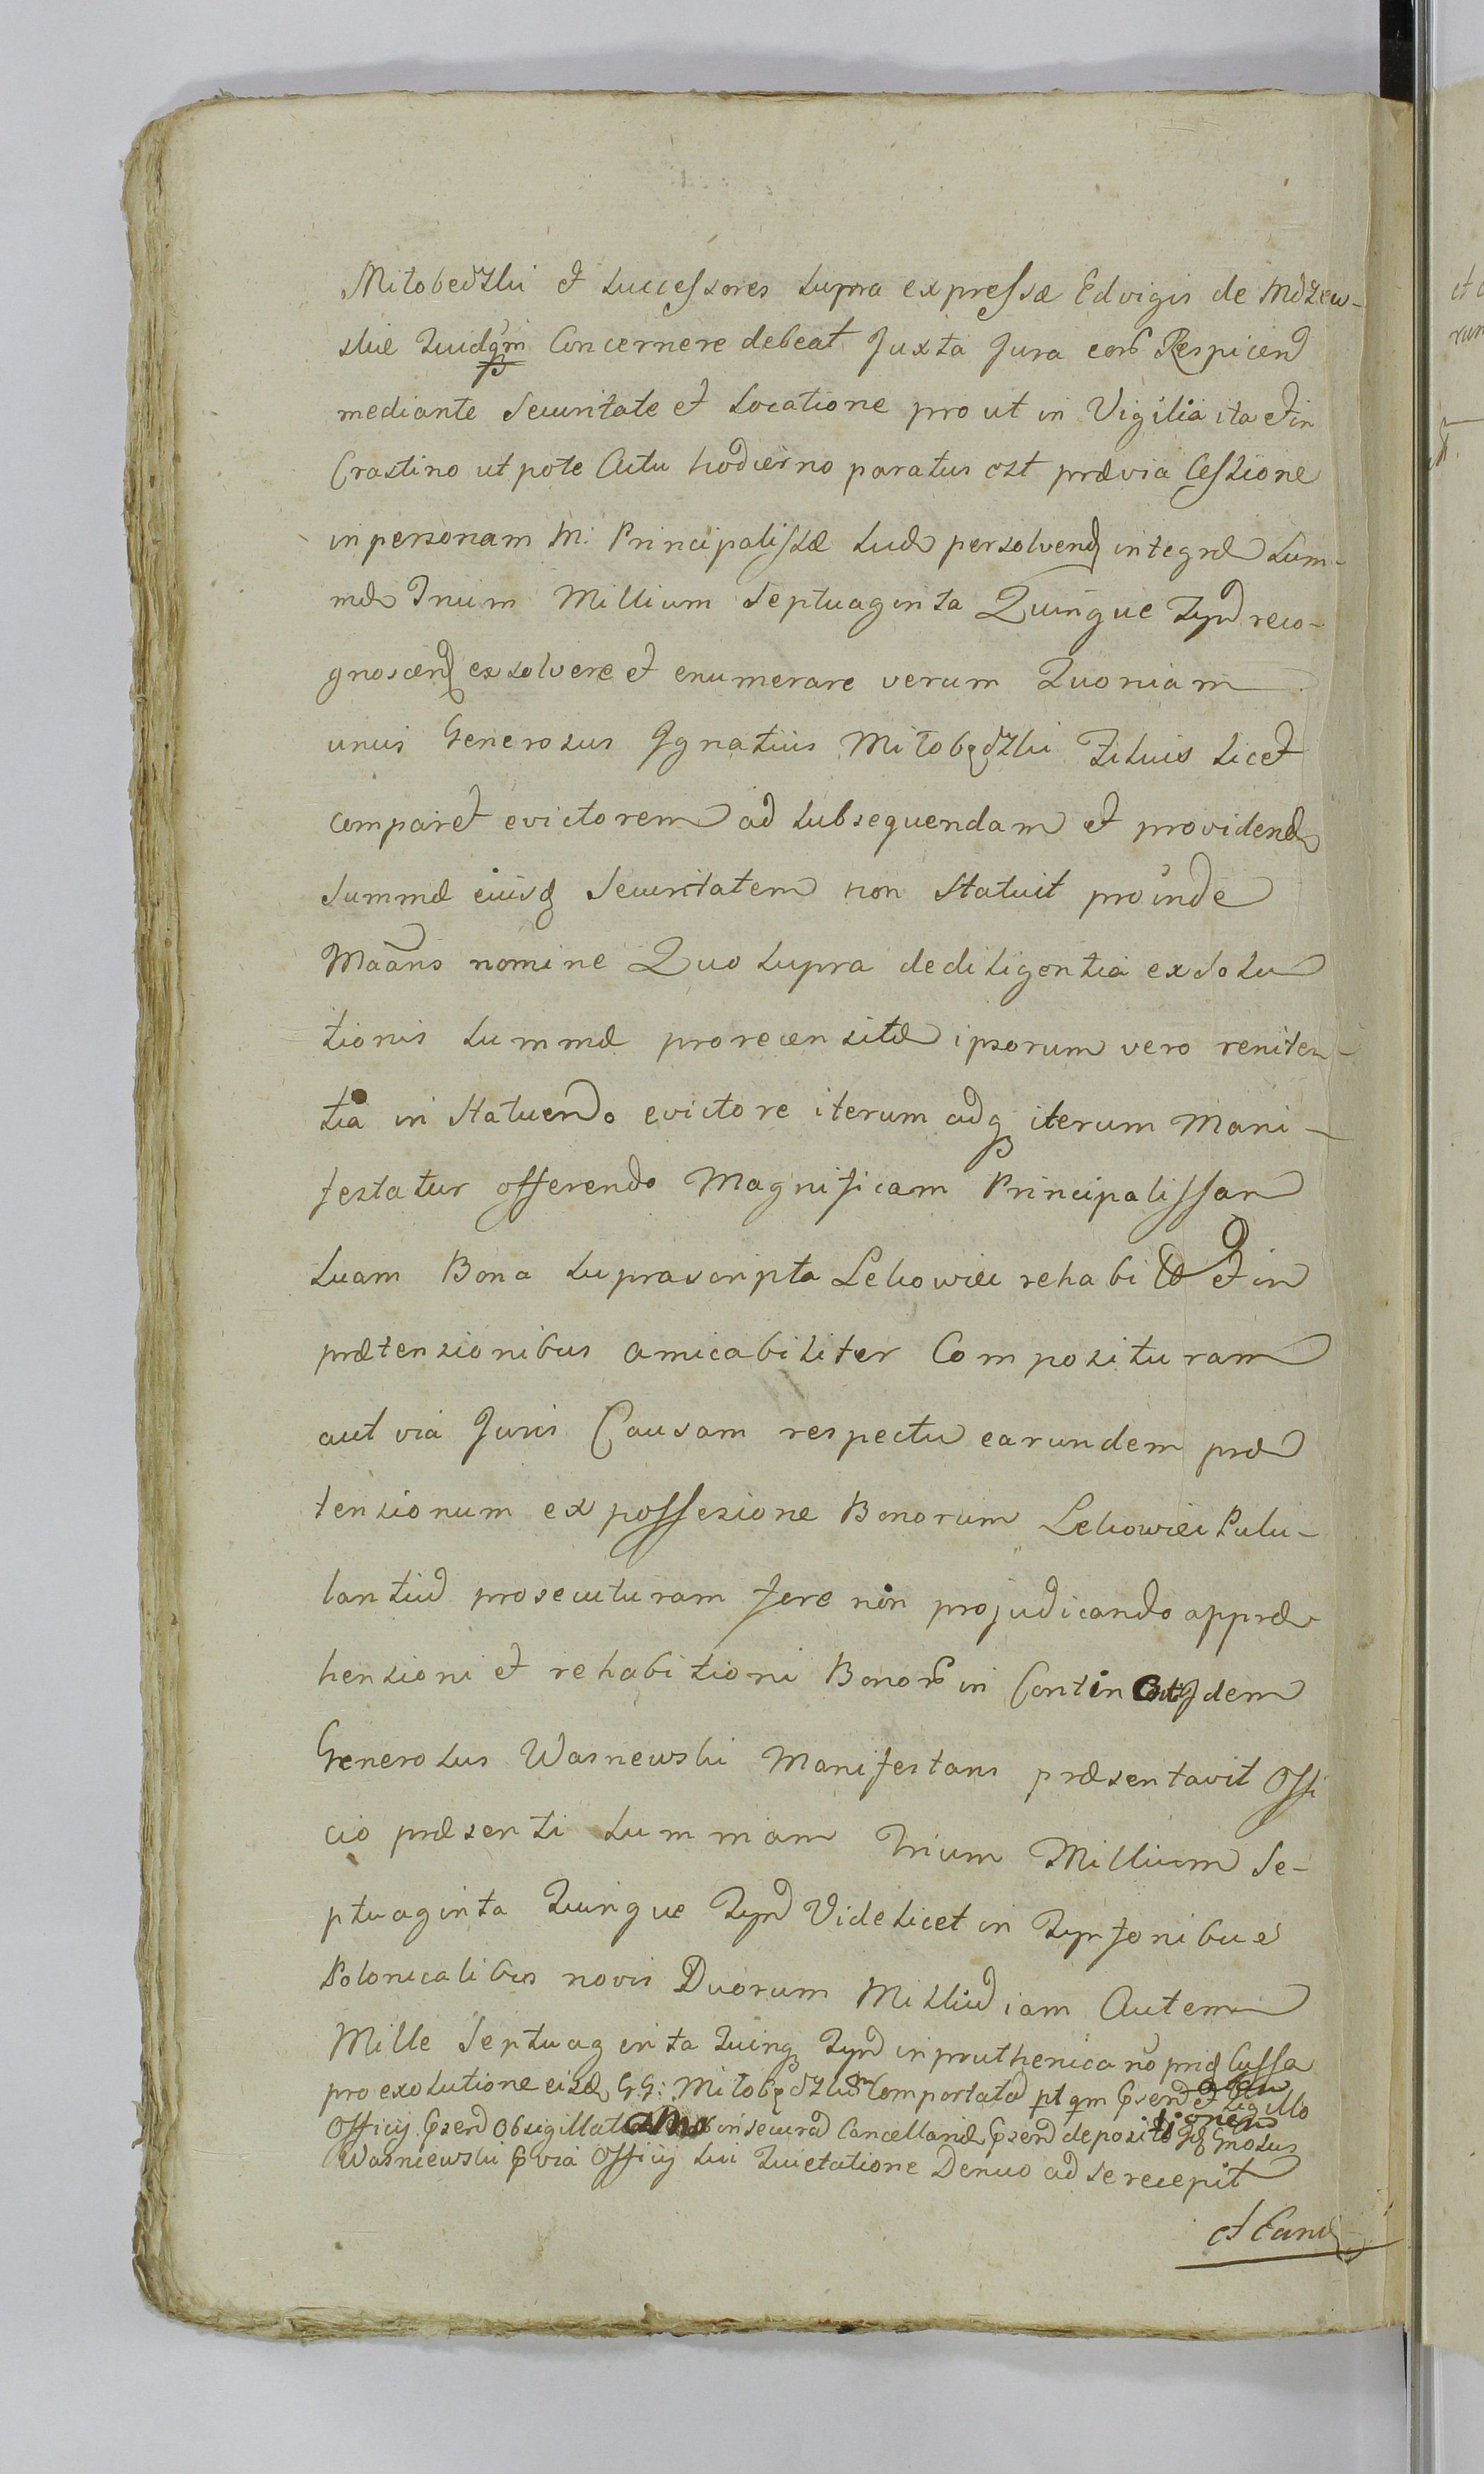 Miłobedzki et Successores supra expressæ Edvigis de Mdzew-
skie Quidqm Concernere debeat Juxta Jura eorũ Respicend
mediante Securitate et Locatione prout in Vigilia ita et in
Crastino ut pote Actu hodierno paratus est prævia Cessione
in personam M: Principalissæ suæ persolvend integræ Sum-
mæ Trium Millium Septuaginta Quinque Tynf reco-
gnoscend exsolvere et enumerare verum Quoniam
unus Generosus Ignatius Miłobędzki Filius licet
comparet evictorem ad subsequendam et providend
Summæ eiusd Securitatem non Statuit proinde
Maãns nomine Quo supra de diligentia exsolu
tionis summæ prorecensitæ ipsorum vero reniten-
tia in Statuendo evictore iterum adq iterum Mani-
festatur offerendo Magnificam Principalissam
suam Bona suprascripta Lekowiec rehabi et in
prætensionibus amicabiliter Composituram
aut via Juris Causam respectu earundem præ
tensionum ex possesione Bonorum Lekowiec Pulu-
lantiũ prosecuturam fore non projudicando appræ
hensioni et rehabitioni Bonorũ in Contin Idem
Generosus Wasniewski Manifestans præsentavit Offi
cio præsenti summam Trium Millium Se-
ptuaginta Quinque Tynf Videlicet in Tynfonibus
Polonicalibus novis Duorum Milliũ iam Autem
Mille Septuaginta Quinq Tynf in pruthenica nõ prid Cussa
pro exolutione eisd G G: Miłobędzkim Comportatã ptqm pserd et Sigillo
Officij pserd Obsigillat in securã Cancellariæ pserd deposit Id Gnosus
Wasniewski pvia Officij sui Quietatione Denuo ad se recepit
et Eand